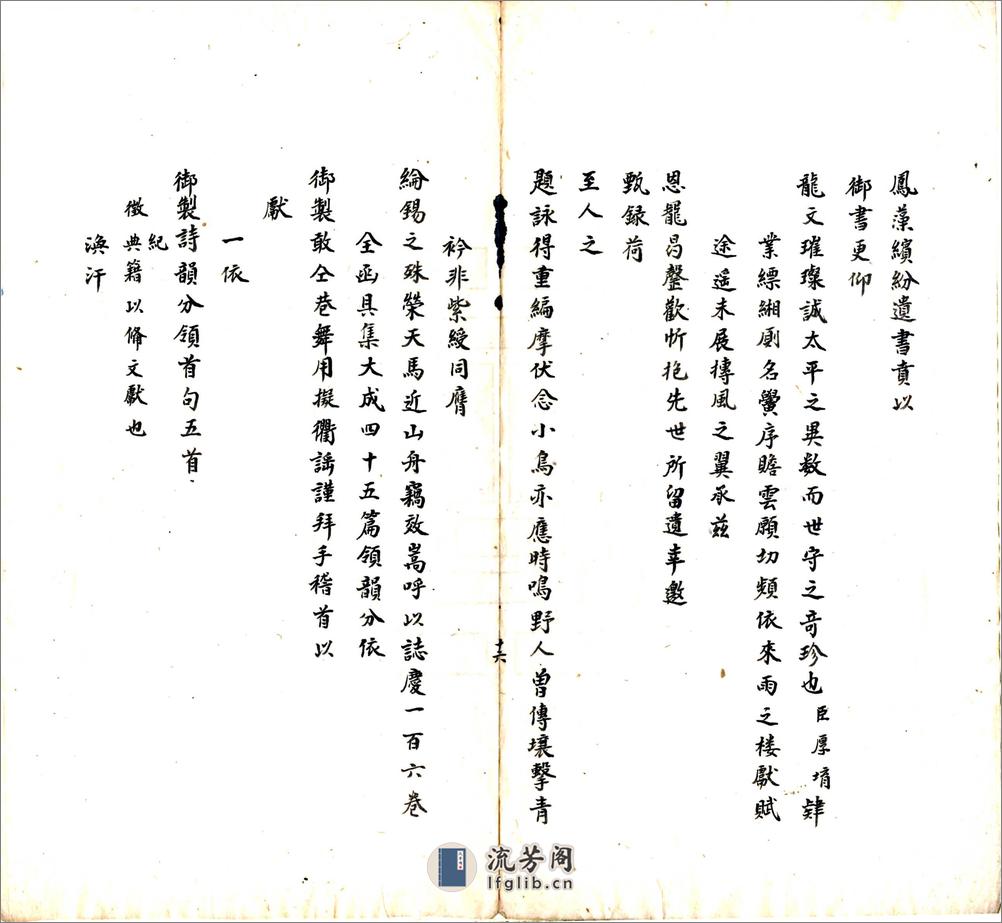 鳳藻繽紛遺書賁以
御書更仰
龍文璀璨誠太平之異数而世守之竒珍也臣厚堉肄
業縹緗厠名黌序瞻雲願切頻依來雨之楼獻賦
途遥未展摶風之翼承茲
恩龍曷罄歡忻抱先世所留遺幸邀
甄録荷
至人之
題詠得重編摩伏念小鳥亦應時鳴野人曽傳壤擊青
十六
衿非紫綬同膺
綸錫之殊榮天馬近山舟竊效嵩呼以誌慶一百六巻
全函具集大成四十五篇領韻分依
御製敢仝巷舞用擬衢謡謹拜手稽首以
獻
一依
御製詩韻分領首句五首
紀
徵典籍以脩文獻也
渙汗
流芳阁
lfglib.cn